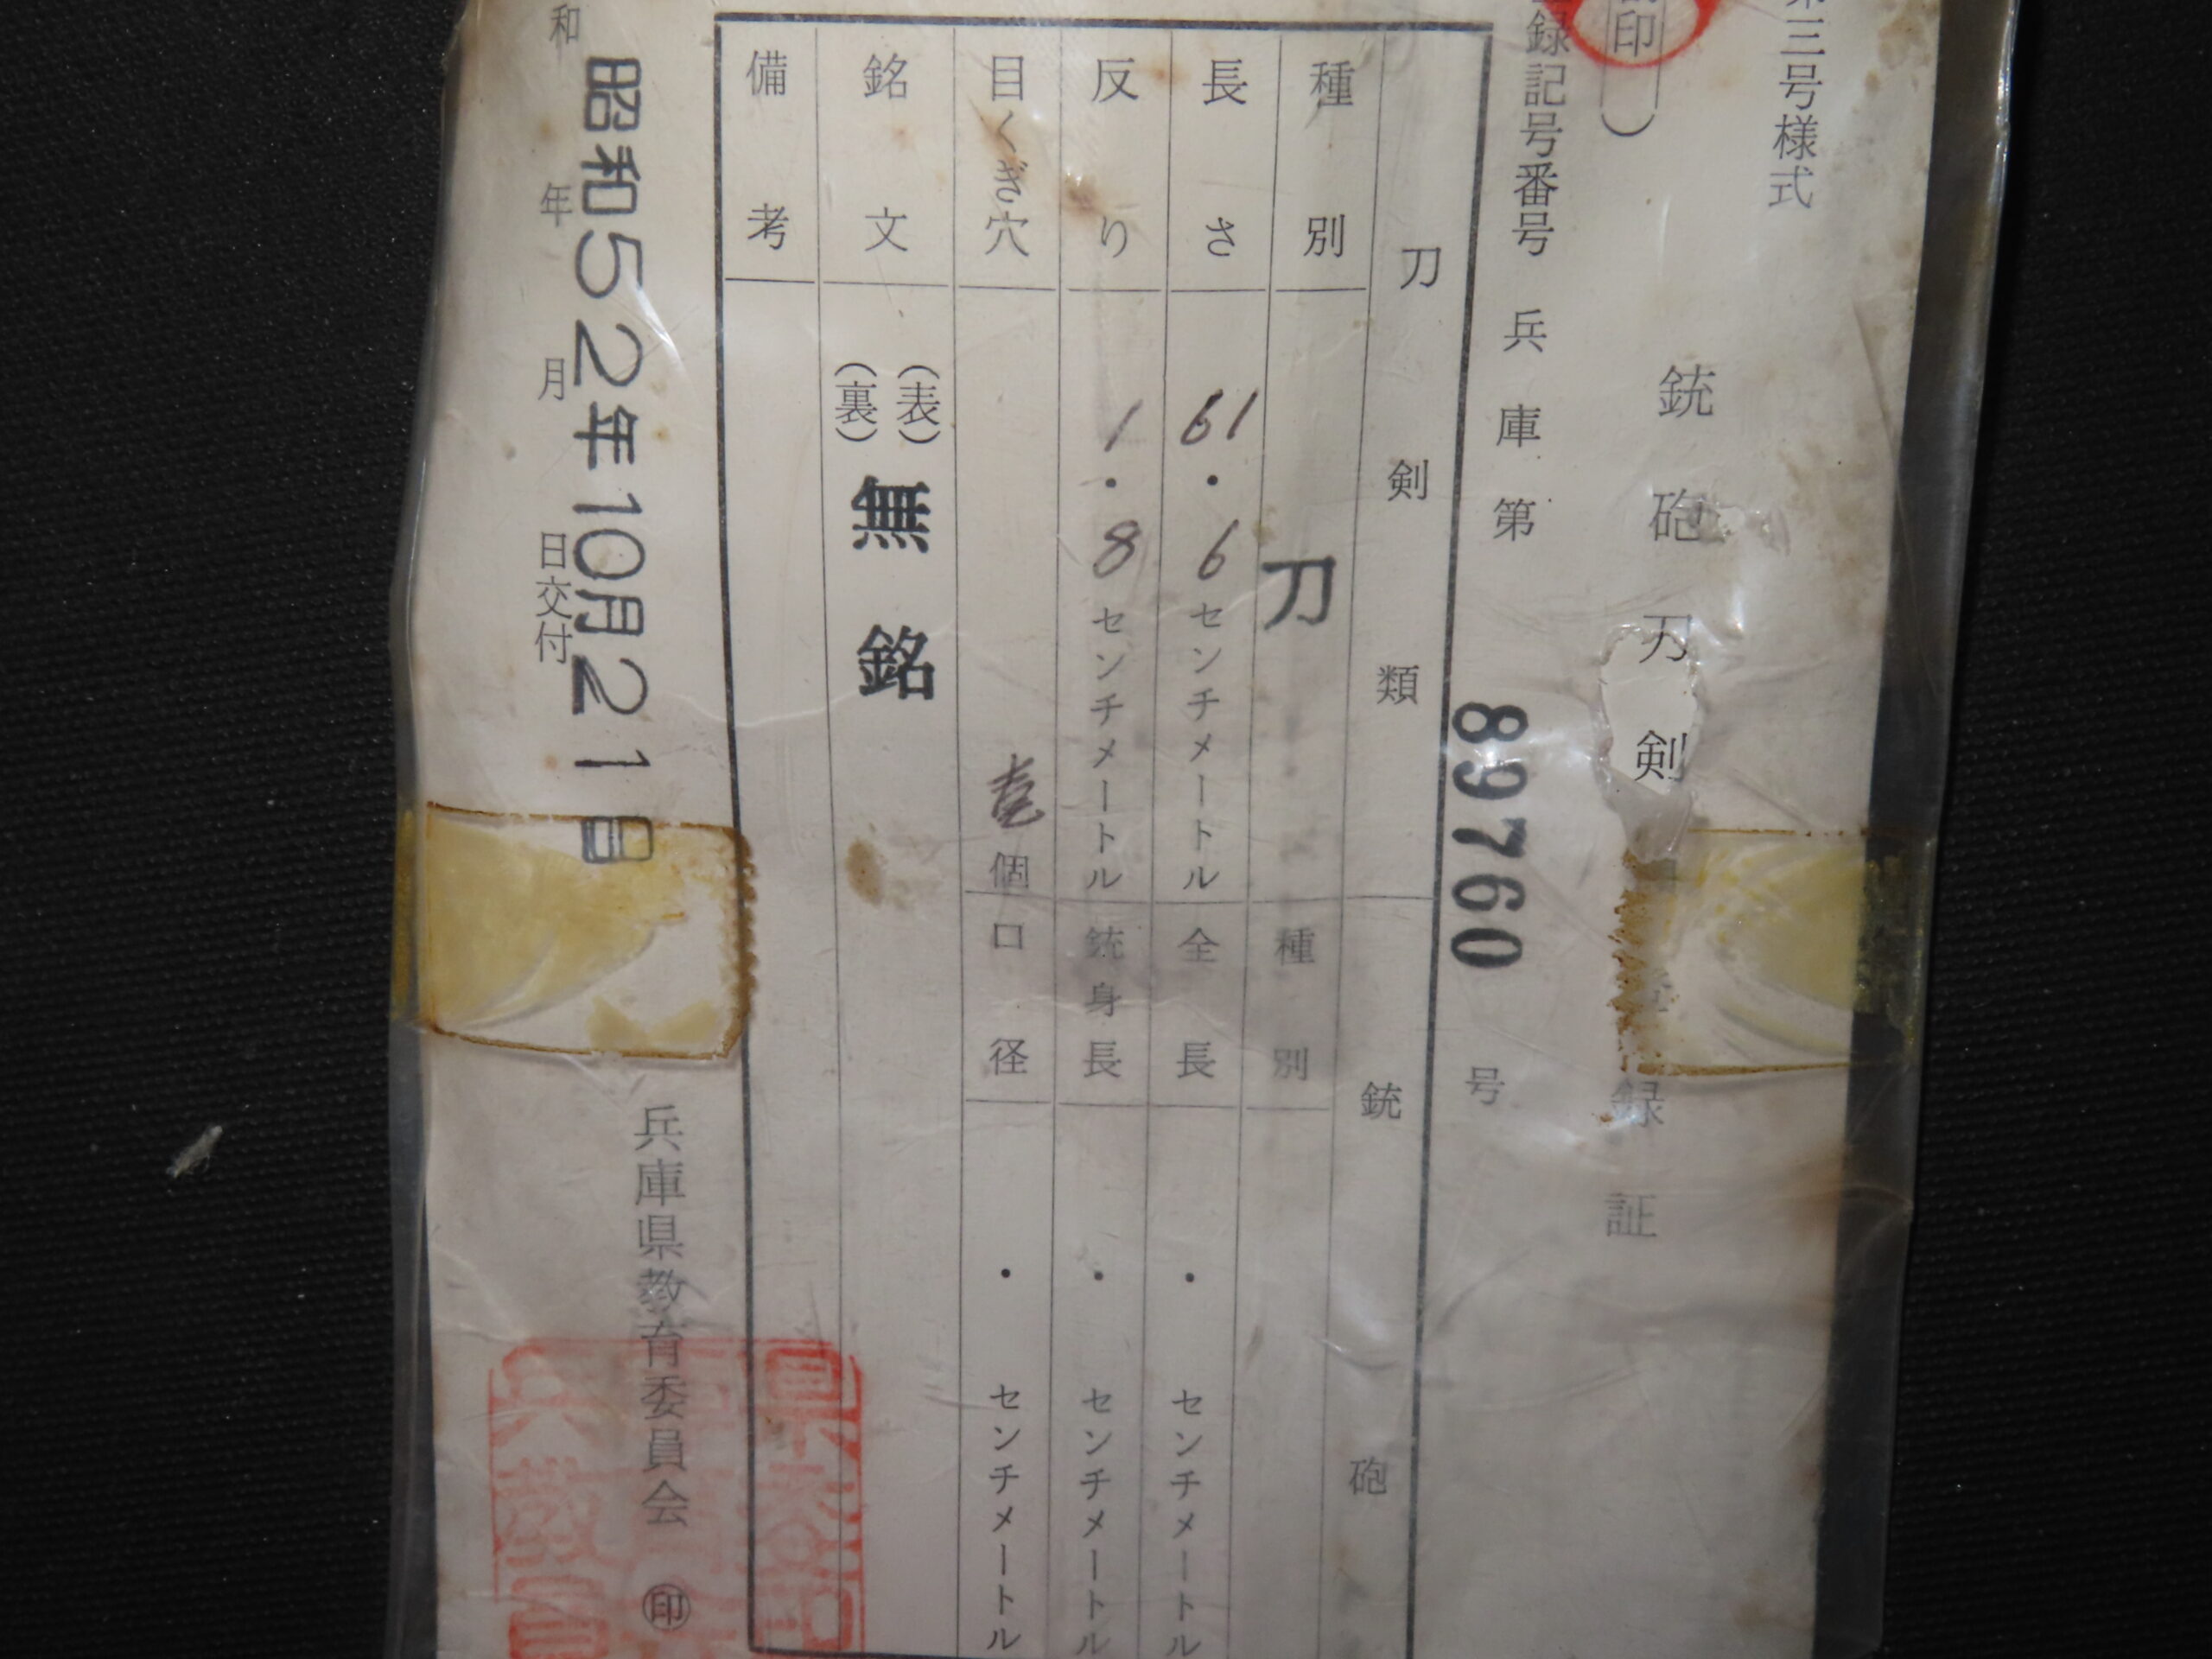 三号様式
印）
銃砲刀剣
録証
録記号番号 兵庫第 89760 号
刀剣類
種別 刀
長さ 61.6 センチメートル
反り 1.8 センチメートル
目くぎ穴 壱 個
銘文 (表) (裏) 無銘
備考
銃砲
種別
全長 ・ センチメートル
銃身長 ・ センチメートル
口径 ・ センチメートル
昭和52年10月21日
和 年 月 日交付
兵庫県教育委員会 ㊞